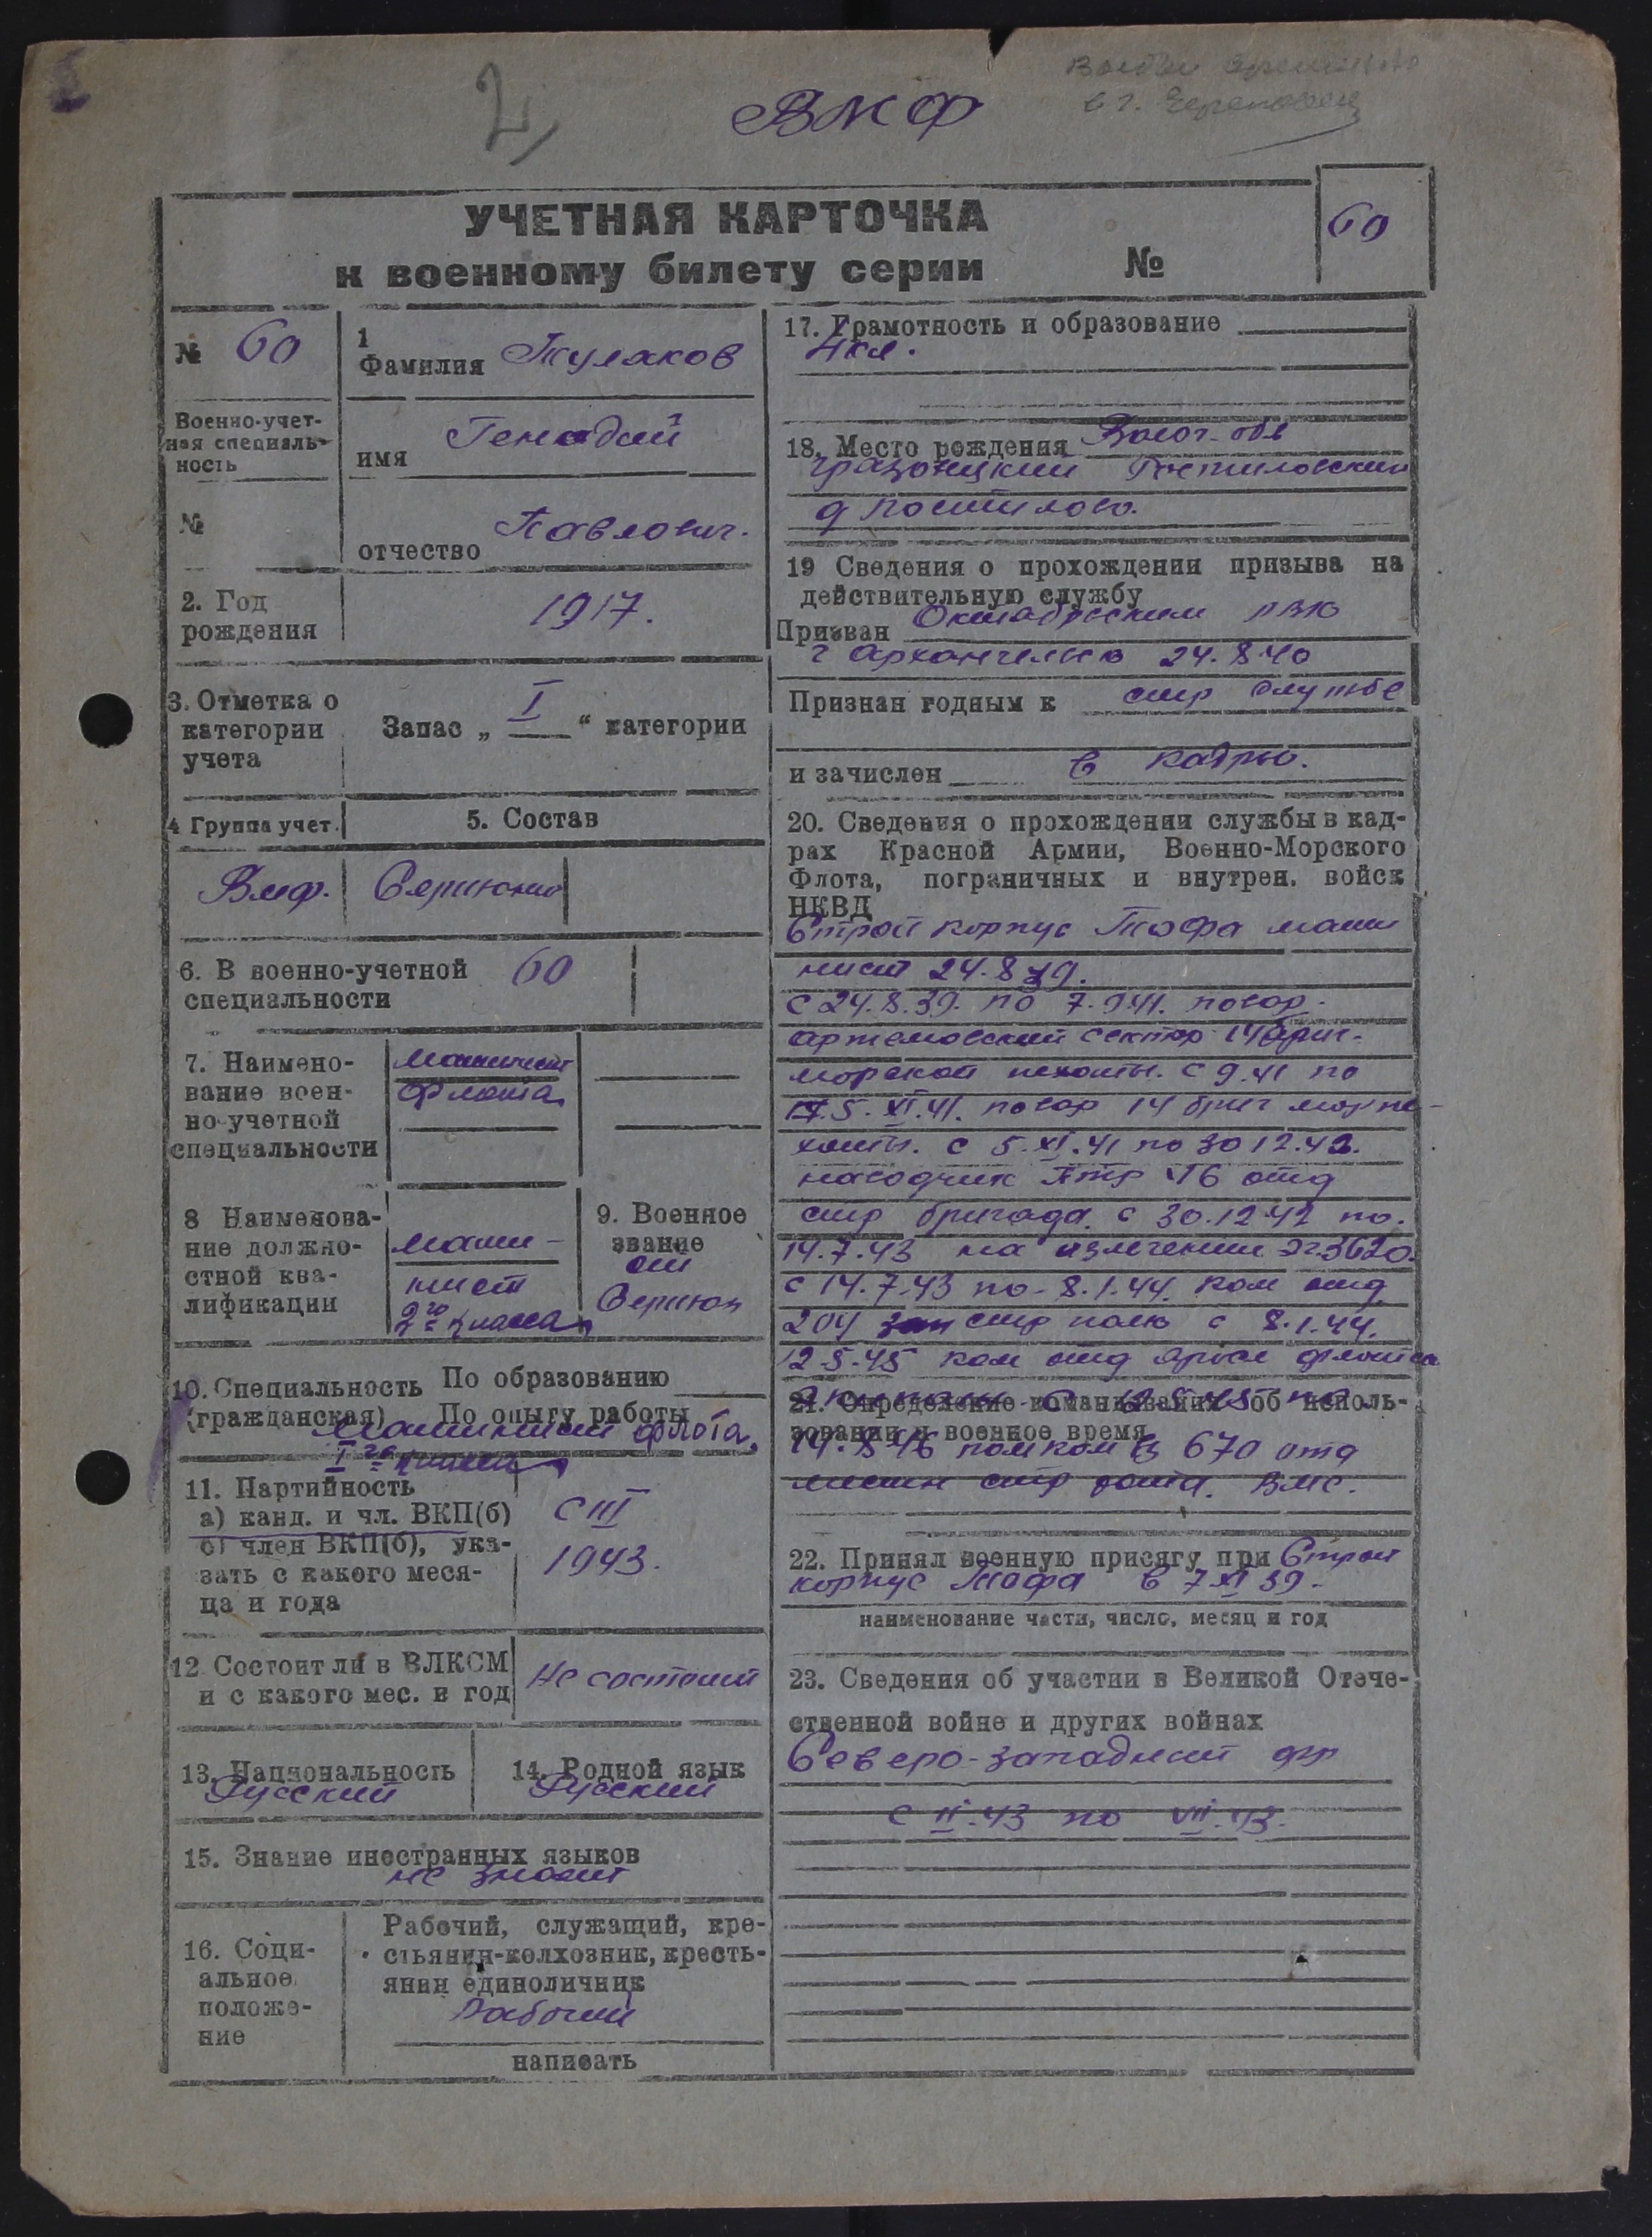 2
ВМФ
в г. Череповец
УЧЕТНАЯ КАРТОЧКА
к военному билету серии №
60
№ 60
1
Фамилия Туляков
Военно-учет-
ная специаль-
ность
имя Генадий
№
отчество Павлович.
2. Год
рождения
1917.
3. Отметка о
категории
учета
Запас „ I “ категории
4 Группа учет.
5. Состав
Вмф.
6. В военно-учетной
специальности
60
7. Наимено-
вание воен-
но-учетной
специальности
Машинист
флота
8 Наименова-
ние должно-
стной ква-
лификации
маши-
нист
2го класса
9. Военное
звание
10. Специальность
(гражданская)
По образованию
По опыту работы
Машинист флота,
11. Партийность
а) канд. и чл. ВКП(б)
б) член ВКП(б), ука-
зать с какого меся-
ца и года
с III
1943.
12 Состоит ли в ВЛКСМ
и с какого мес. и год
Не состоит
13. Национальность
Русский
14. Родной язык
Русский
15. Знание иностранных языков
не знает
16. Соци-
альное
положе-
ние
Рабочий, служащий, кре-
стьянин-колхозник, кресть-
янин единоличник
Рабочий
написать
17. Грамотность и образование
4 кл.
18. Место рождения Волог. обл
Грязовецкий Ростиловский
19 Сведения о прохождении призыва на
действительную службу
Призван Октябрьским РВК
г Архангельск 24.8.40
Признан годным к стр службе
и зачислен в кадры.
20. Сведения о прохождении службы в кад-
рах Красной Армии, Военно-Морского
Флота, пограничных и внутрен. войск
НКВД
Строй корпус Тофа маши
нист 24.8.39.
с 24.8.39. по 7.9.41. повар.
артемовский сектор 14 бриг.
морской пехоты. с 9.41 по
5.XI.41. повар 14 бриг мор пе-
хоты. с 5.XI.41 по 30 12.42.
наводчик Птр 116 отд
стр бригада. с 30.12.42 по.
14.7.43 на излечении Эг.3620.
с 14.7.43 по - 8.1.44. ком отд
204 зап стр полк с 8.1.44.
12-5-45 ком отд флотск
экипаж
21. Определение командования об исполь-
зовании в военное время
помком вз 670 отд
местн стр рота. ВМС.
22. Принял военную присягу при Строй
корпус Тофа в 7 XI 39.
наименование части, число, месяц и год
23. Сведения об участии в Великой Отече-
ственной войне и других войнах
Северо-западный фр
с II.43 по VII.43.